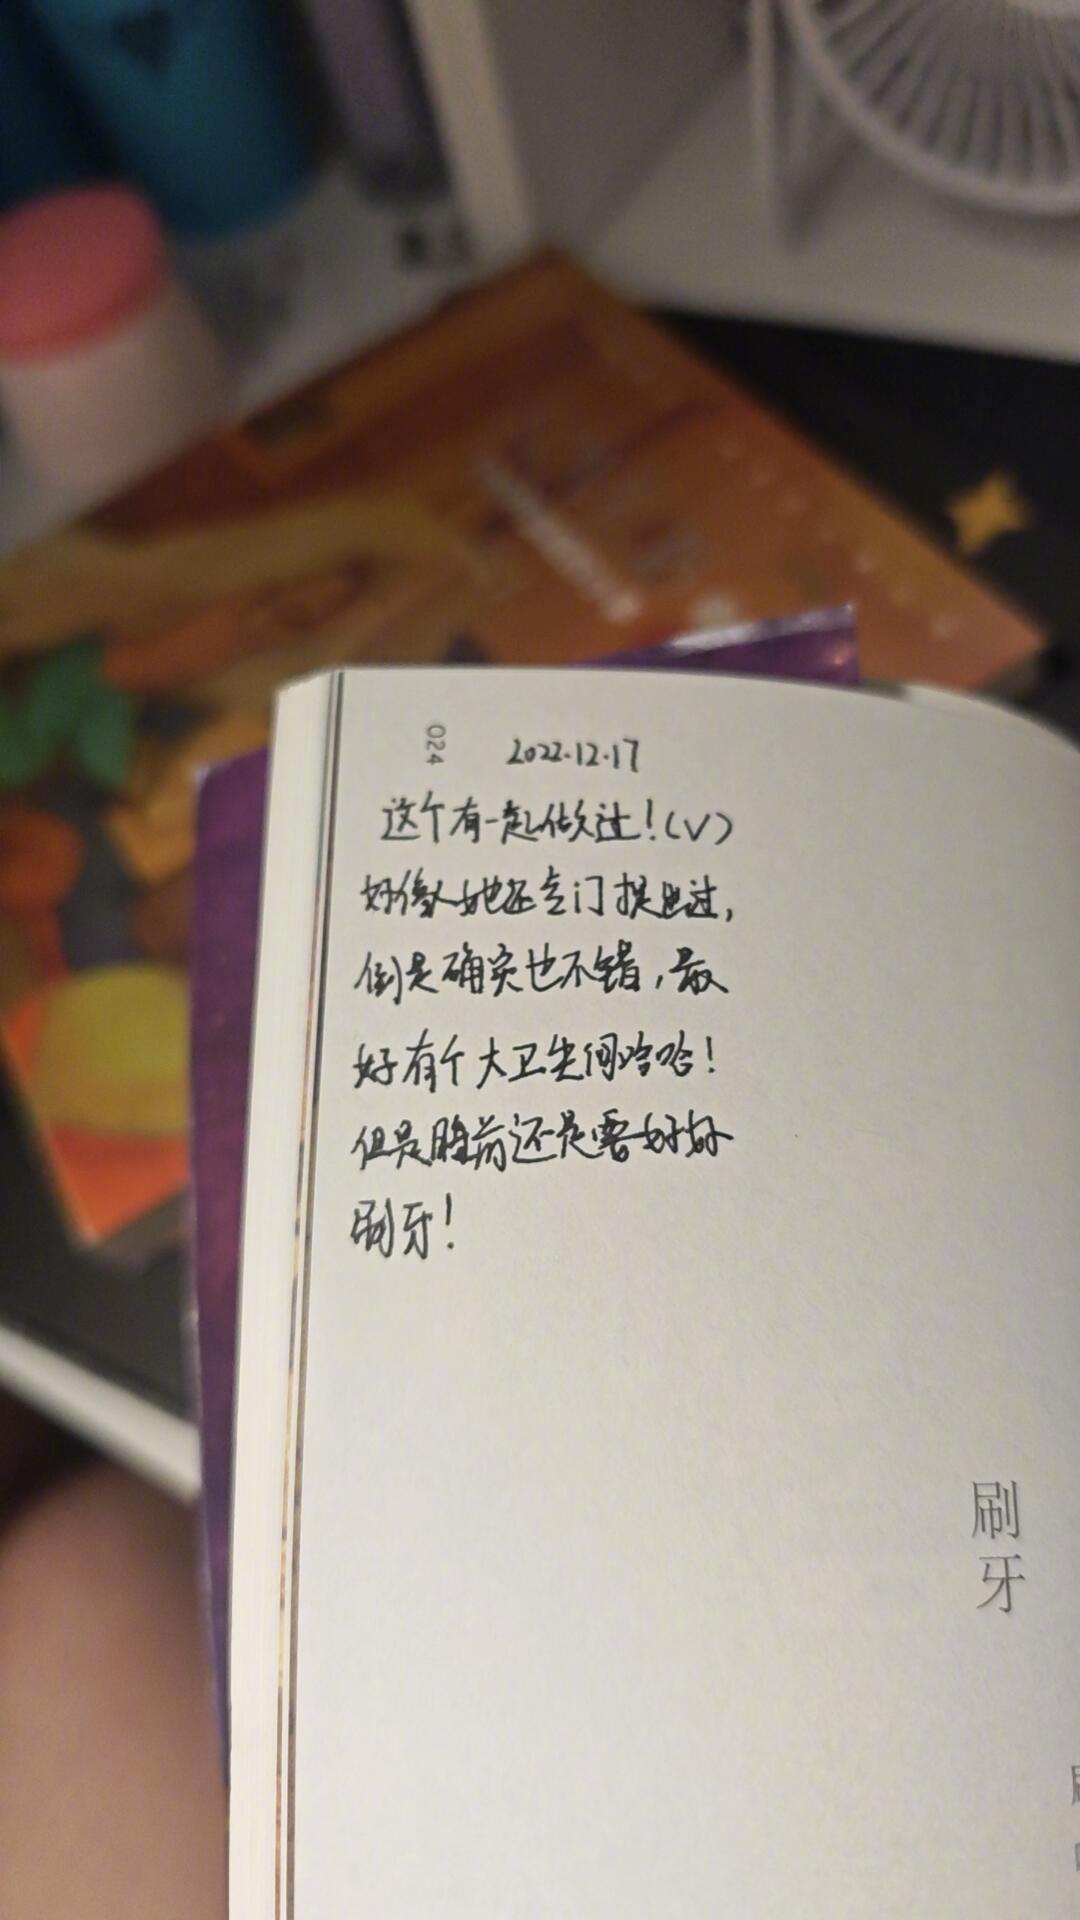 024
2022.12.17
这个有一起做过！(√)
好像她还专门提出过，
倒是确实也不错，最
好有个大卫生间哈哈！
但是睡前还是要好好
刷牙！
刷牙